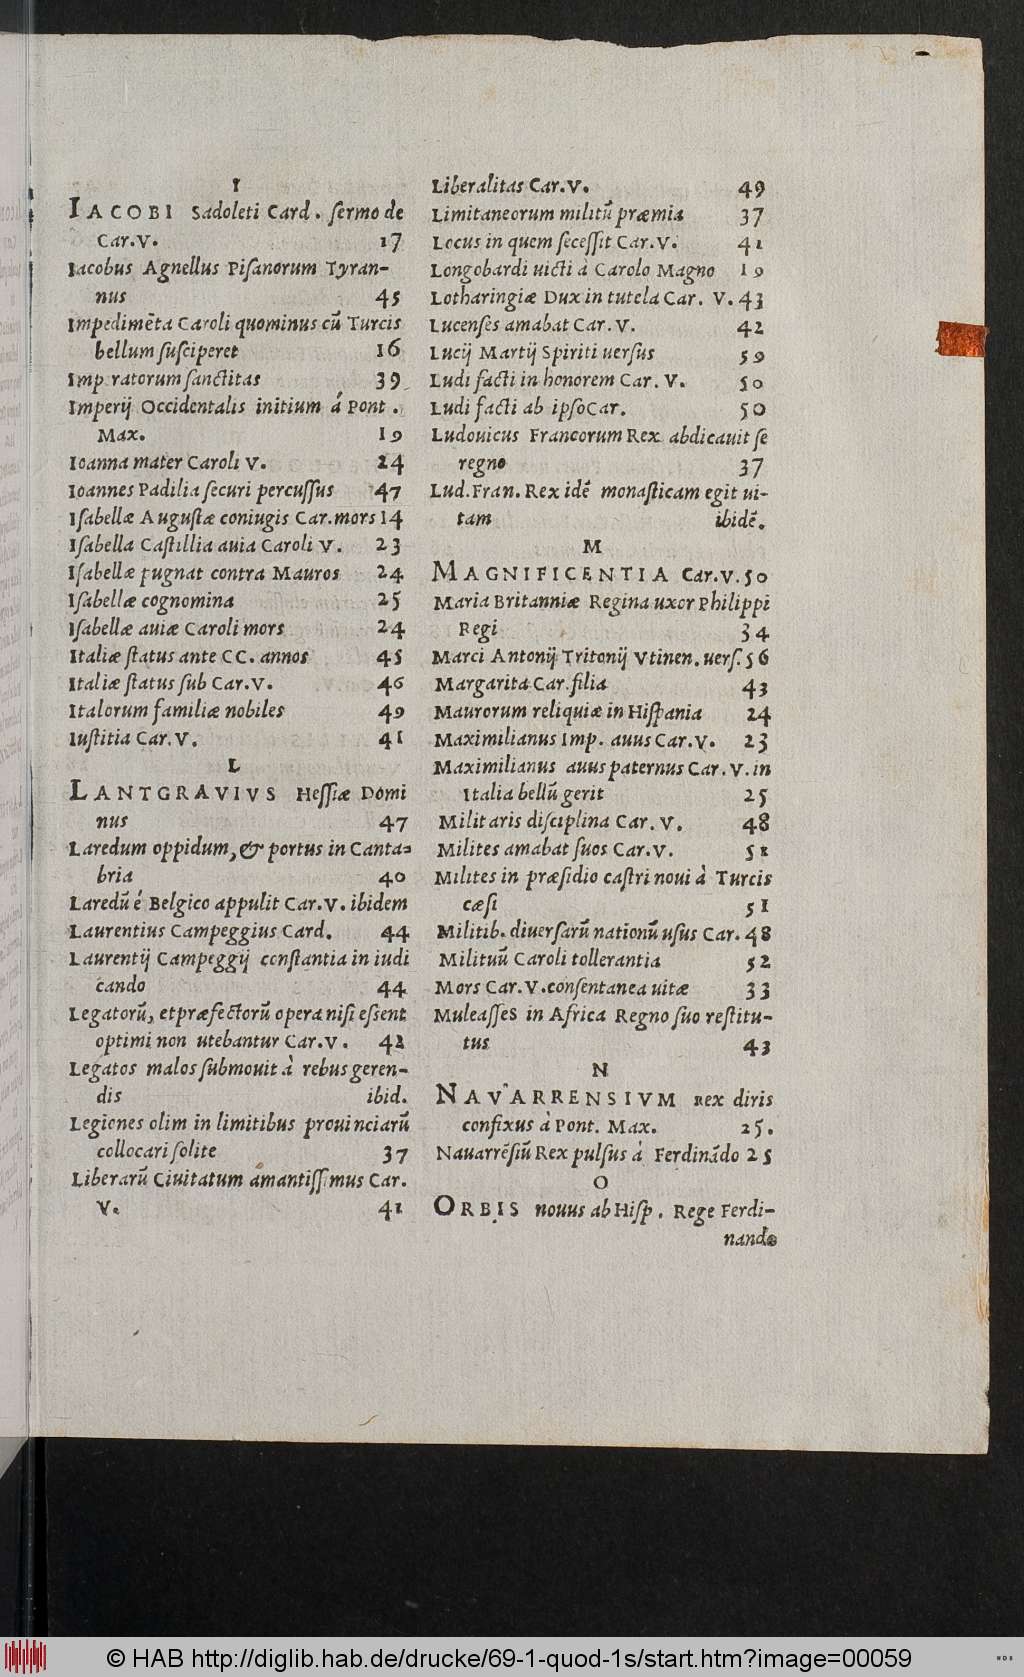 I
IACOBI Sadoleti Card. ſermo de
Car.V. 17
Iacobus Agnellus Piſanorum Tyran-
nus 45
Impedimēta Caroli quominus cū Turcis
bellum ſuſciperet 16
Imp ratorum ſanctitas 39
Imperij Occidentalis initium á Pont.
Max. 19
Ioanna mater Caroli V. 24
Ioannes Padilia ſecuri percuſſus 47
Iſabellæ Auguſtæ coniugis Car.mors 14
Iſabella Caſtillia auia Caroli V. 23
Iſabellæ pugnat contra Mauros 24
Iſabellæ cognomina 25
Iſabellæ auiæ Caroli mors 24
Italiæ ſtatus ante CC. annos 45
Italiæ ſtatus ſub Car.V. 46
Italorum familiæ nobiles 49
Iuſtitia Car.V. 41
L
LANTGRAVIVS Heſſiæ Domi
nus 47
Laredum oppidum, & portus in Canta=
bria 40
Laredū é Belgico appulit Car.V. ibidem
Laurentius Campeggius Card. 44
Laurentij Campeggij conſtantia in iudi
cando 44
Legatorū, et præfectorū opera niſi eſſent
optimi non utebantur Car.V. 42
Legatos malos ſubmouit à rebus geren-
dis ibid.
Legiones olim in limitibus prouinciarū
collocari ſolite 37
Liberarū Ciuitatum amantiſſimus Car.
V. 41
Liberalitas Car.V. 49
Limitaneorum militū præmia 37
Locus in quem ſeceſſit Car.V. 41
Longobardi uicti à Carolo Magno 19
Lotharingiæ Dux in tutela Car. V. 43
Lucenſes amabat Car.V. 42
Lucij Martij Spiriti uerſus 59
Ludi facti in honorem Car.V. 50
Ludi facti ab ipſo Car. 50
Ludouicus Francorum Rex abdicauit ſe
regno 37
Lud.Fran. Rex idē monaſticam egit ui-
tam ibidē.
M
MAGNIFICENTIA Car.V. 50
Maria Britanniæ Regina uxor Philippi
Regi 34
Marci Antonij Tritonij Vtinen.uerſ. 56
Margarita Car.filia 43
Maurorum reliquiæ in Hiſpania 24
Maximilianus Imp. auus Car.V. 23
Maximilianus auus paternus Car.V.in
Italia bellū gerit 25
Militaris diſciplina Car. V. 48
Milites amabat ſuos Car.V. 51
Milites in præſidio caſtri noui à Turcis
cæſi 51
Militib. diuerſarū nationū uſus Car. 48
Mılituū Caroli tollerantia 52
Mors Car.V.conſentanea uitæ 33
Muleaſſes in Africa Regno ſuo reſtitu-
tus 43
N
NAVARRENSIVM rex diris
confixus à Pont. Max. 25.
Nauarrēſiū Rex pulſus à Ferdinādo 25
O
ORBIS nouus ab Hiſp. Rege Ferdi-
nando
© HAB http://diglib.hab.de/drucke/69-1-quod-1s/start.htm?image=00059